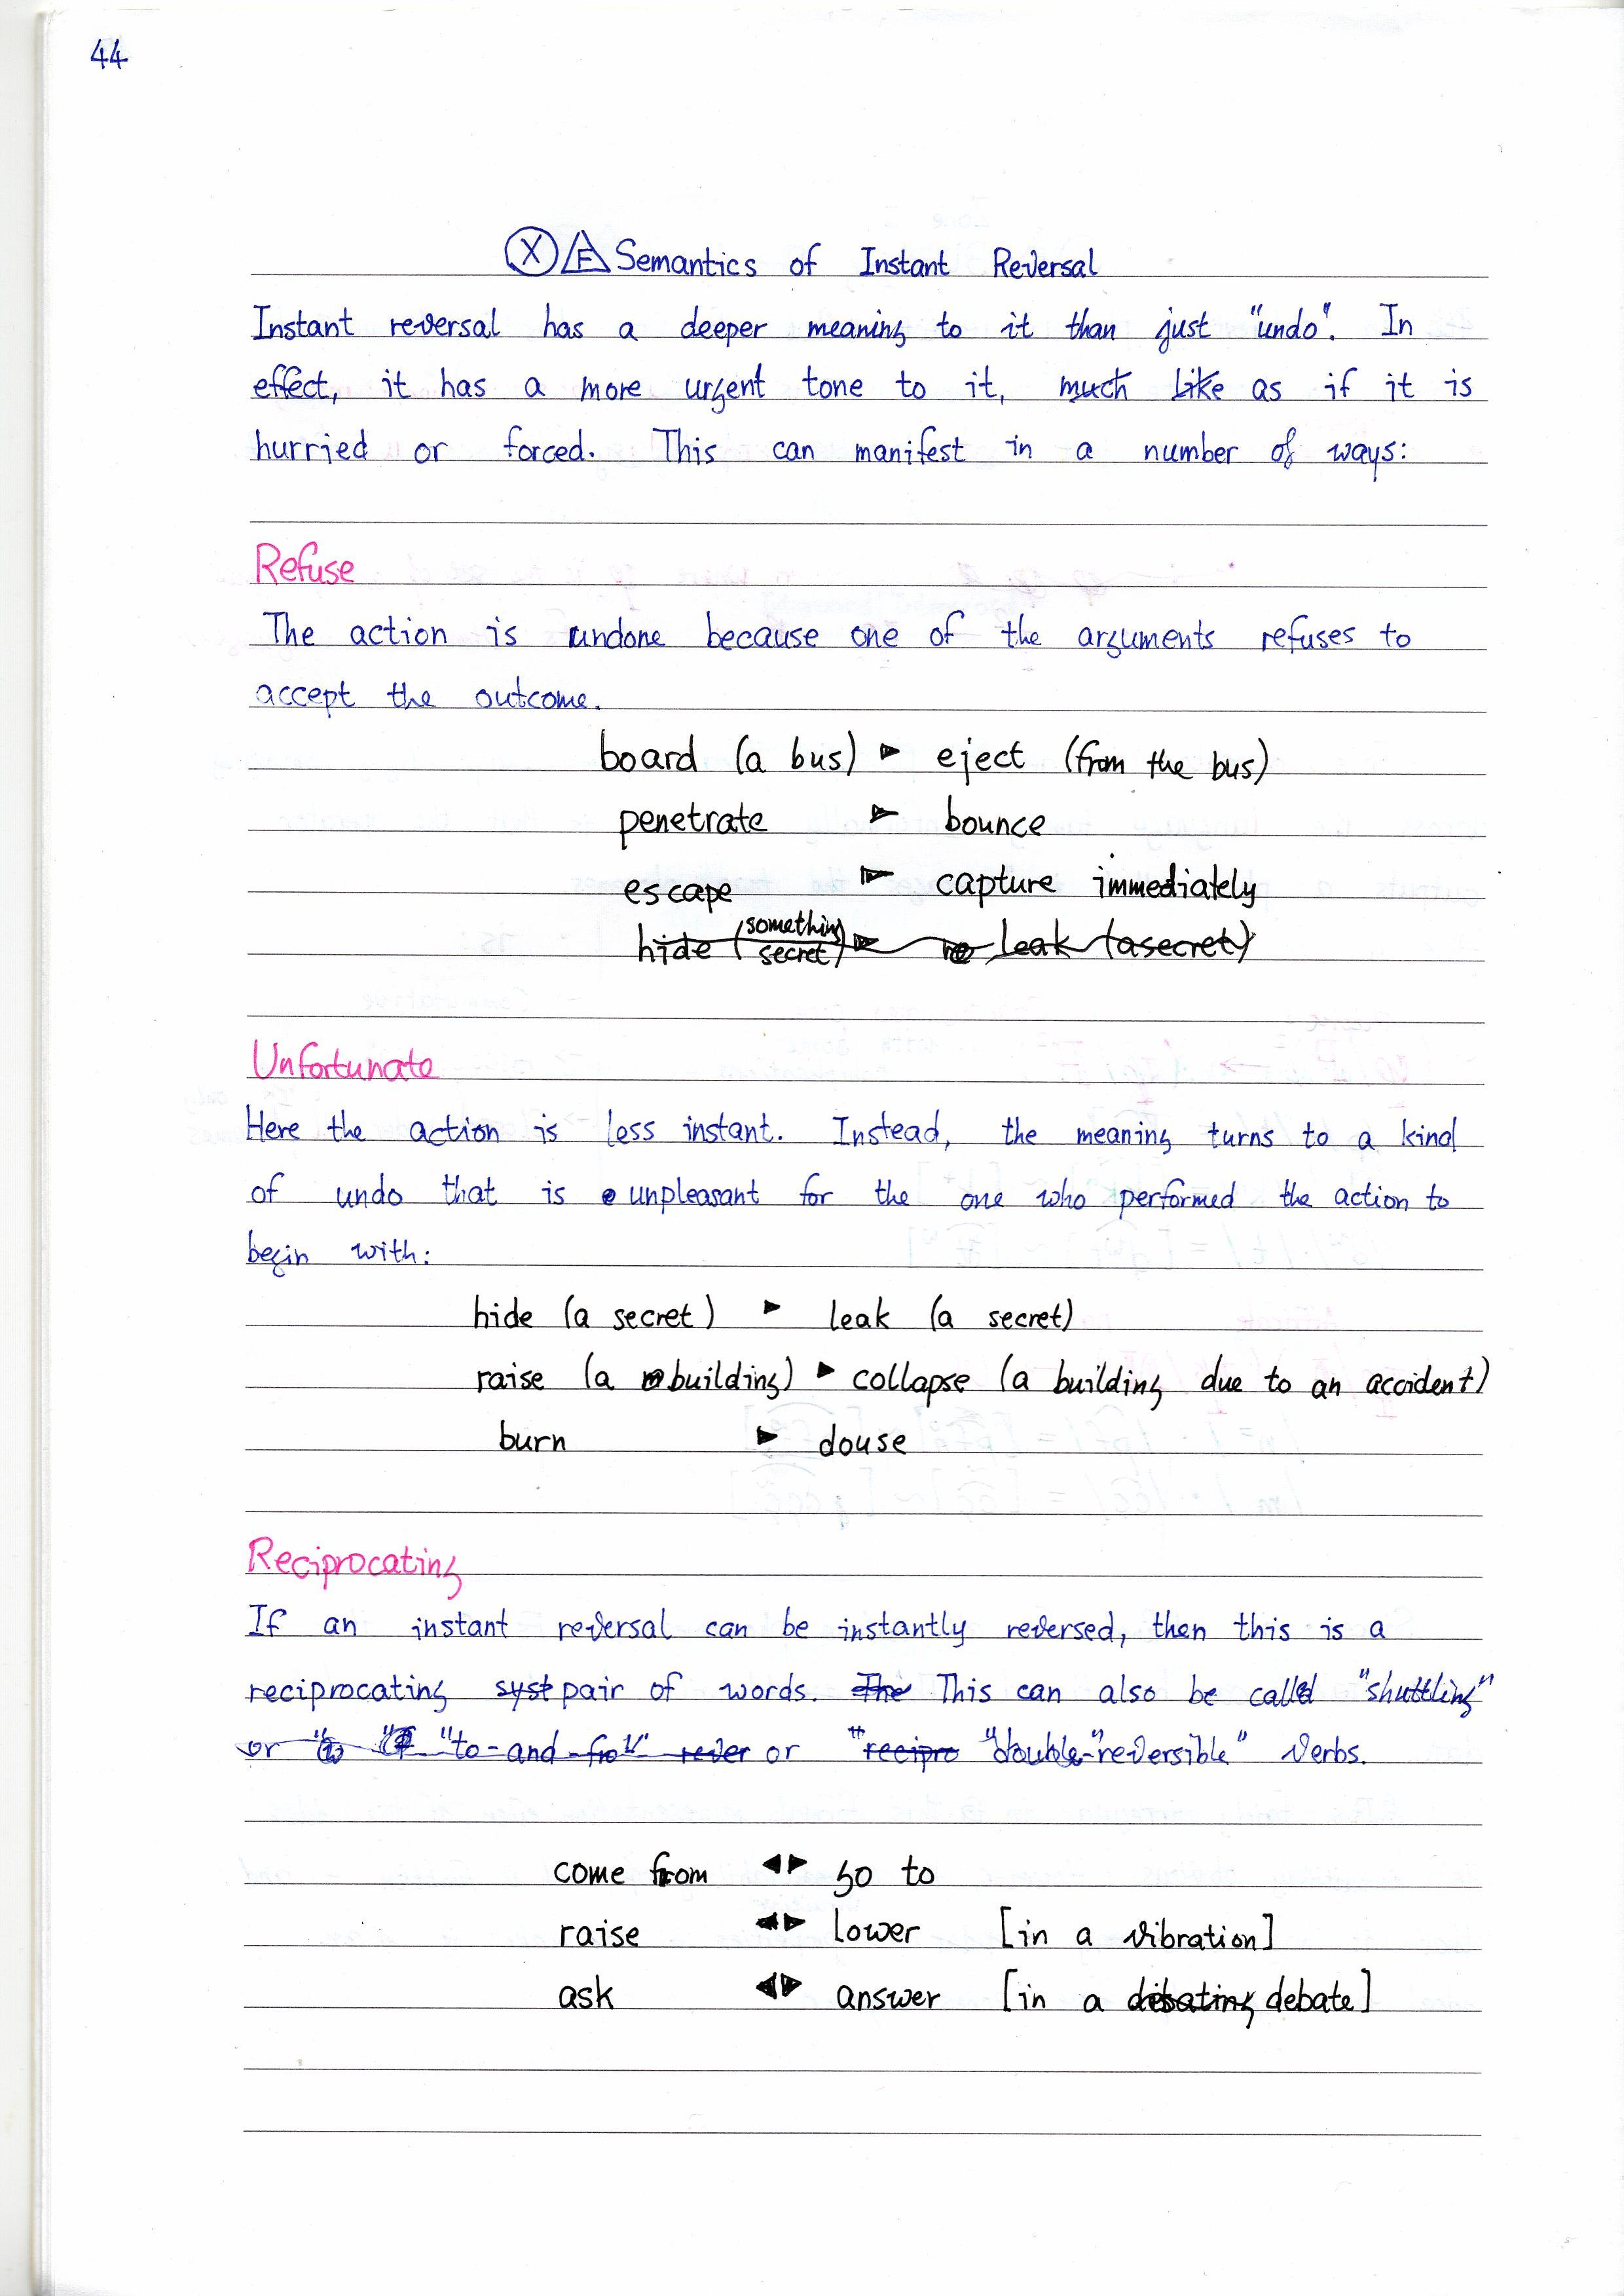 44
Ⓧ E Semantics of Instant Reversal
Instant reversal has a deeper meaning to it than just "undo". In
effect, it has a more urgent tone to it, much like as if it is
hurried or forced. This can manifest in a number of ways:
Refuse
The action is undone because one of the arguments refuses to
accept the outcome.
board (a bus) ► eject (from the bus)
penetrate ► bounce
escape ► capture immediately
hide (something secret) ► leak (a secret)
Unfortunate
Here the action is less instant. Instead, the meaning turns to a kind
of undo that is unpleasant for the one who performed the action to
begin with:
hide (a secret) ► leak (a secret)
raise (a building) ► collapse (a building due to an accident)
burn ► douse
Reciprocating
If an instant reversal can be instantly reversed, then this is a
reciprocating syst pair of words. The This can also be called "shuttling"
or "to-and-fro" rever or "recipro "double-"reversible" verbs.
come from ◄► go to
raise ◄► lower [in a vibration]
ask ◄► answer [in a debating debate]